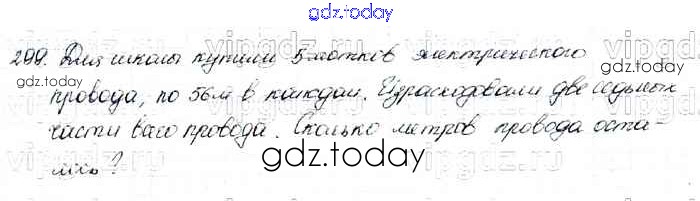 gdz.today
299. Для школы купили 5 мотков электрического
gdz.today
провода, по 56 м в каждом. Израсходовали две седьмых
gdz.today
части всего провода. Сколько метров провода оста-
gdz.today
лось?